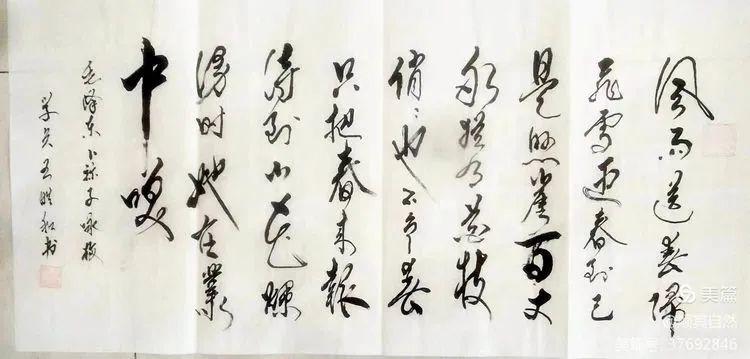 风雨送春归
飞雪迎春到已
是悬崖百丈
冰犹有花枝
俏、也不争春
只把春来报
待到山花烂
漫时她在丛
中笑
毛泽东卜算子咏梅
学员王和书
美篇
@顺其自然
美篇号: 37692846